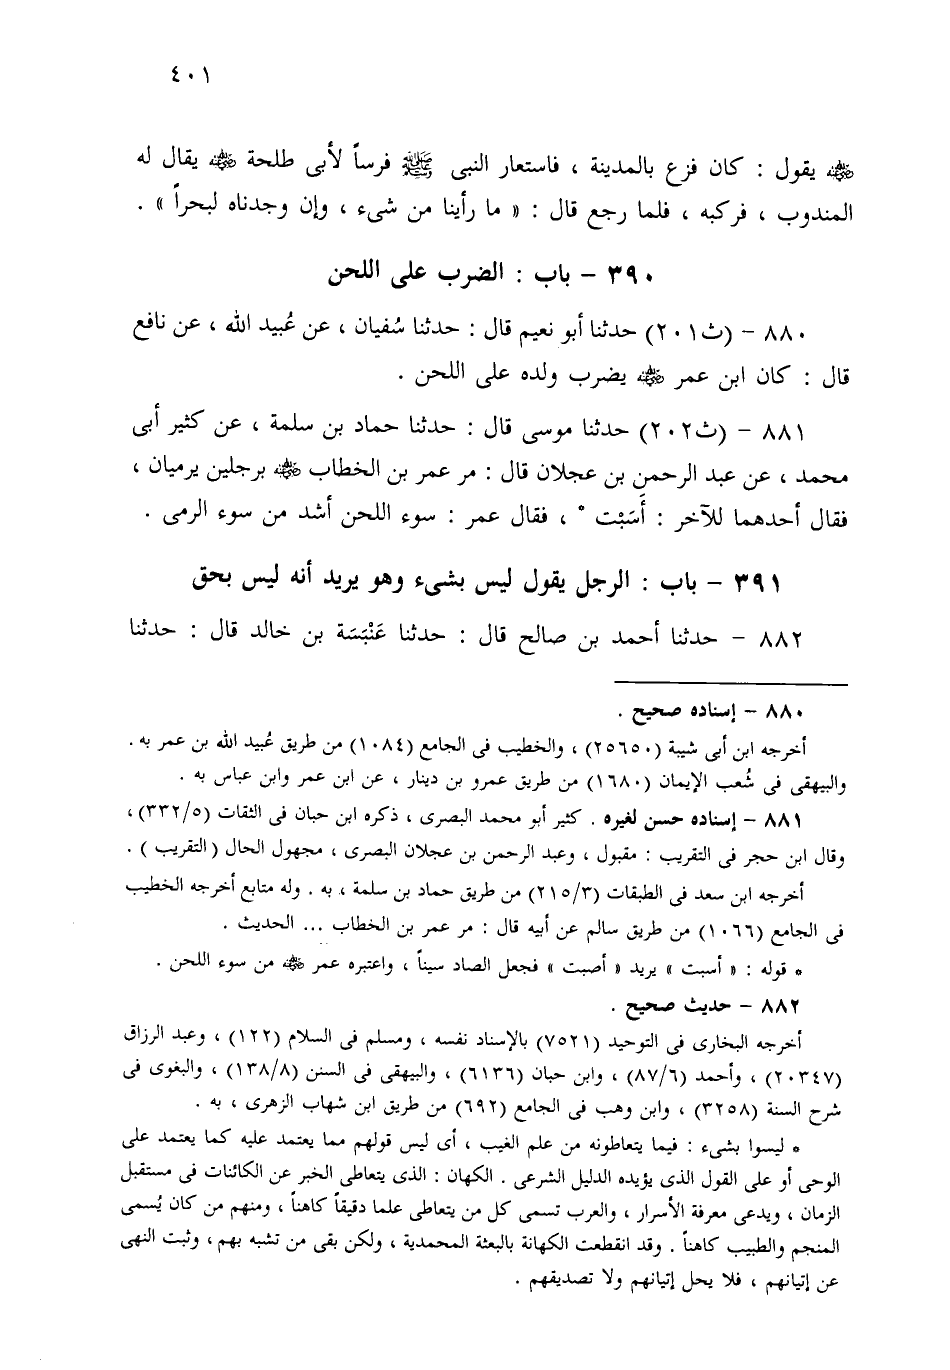 ٤٠١
﵁ يقول : كان فزع بالمدينة ، فاستعار النبى ﷺ فرساً لأبى طلحة ﵁ يقال له
المندوب ، فركبه ، فلما رجع قال : « ما رأينا من شىء ، وإن وجدناه لبحراً » .
٣٩٠ – باب : الضرب على اللحن
٨٨٠ – (ث٢٠١) حدثنا أبو نعيم قال : حدثنا سُفيان ، عن عُبيد الله ، عن نافع
قال : كان ابن عمر ﵁ يضرب ولده على اللحن .
٨٨١ – (ث٢٠٢) حدثنا موسى قال : حدثنا حماد بن سلمة ، عن كثير أبى
محمد ، عن عبد الرحمن بن عجلان قال : مر عمر بن الخطاب ﵁ برجلين يرميان ،
فقال أحدهما للآخر : أَسَبْت * ، فقال عمر : سوء اللحن أشد من سوء الرمى .
٣٩١ – باب : الرجل يقول ليس بشىء وهو يريد أنه ليس بحق
٨٨٢ – حدثنا أحمد بن صالح قال : حدثنا عَنْبَسَة بن خالد قال : حدثنا
٨٨٠ – إسناده صحيح .
أخرجه ابن أبى شيبة (٢٥٦٥٠) ، والخطيب فى الجامع (١٠٨٤) من طريق عُبيد الله بن عمر به .
والبيهقى فى شُعب الإيمان (١٦٨٠) من طريق عمرو بن دينار ، عن ابن عمر وابن عباس به .
٨٨١ – إسناده حسن لغيره . كثير أبو محمد البصرى ، ذكره ابن حبان فى الثقات (٣٣٢/٥) ،
وقال ابن حجر فى التقريب : مقبول ، وعبد الرحمن بن عجلان البصرى ، مجهول الحال ( التقريب ) .
أخرجه ابن سعد فى الطبقات (٢١٥/٣) من طريق حماد بن سلمة ، به . وله متابع أخرجه الخطيب
فى الجامع (١٠٦٦) من طريق سالم عن أبيه قال : مر عمر بن الخطاب ... الحديث .
* قوله : « أسبت » يريد « أصبت » فجعل الصاد سيناً ، واعتبره عمر ﵁ من سوء اللحن .
٨٨٢ – حديث صحيح .
أخرجه البخارى فى التوحيد (٧٥٢١) بالإسناد نفسه ، ومسلم فى السلام (١٢٢) ، وعبد الرزاق
(٢٠٣٤٧) ، وأحمد (٨٧/٦) ، وابن حبان (٦١٣٦) ، والبيهقى فى السنن (١٣٨/٨) ، والبغوى فى
شرح السنة (٣٢٥٨) ، وابن وهب فى الجامع (٦٩٢) من طريق ابن شهاب الزهرى ، به .
* ليسوا بشىء : فيما يتعاطونه من علم الغيب ، أى ليس قولهم مما يعتمد عليه كما يعتمد على
الوحى أو على القول الذى يؤيده الدليل الشرعى . الكهان : الذى يتعاطى الخبر عن الكائنات فى مستقبل
الزمان ، ويدعى معرفة الأسرار ، والعرب تسمى كل من يتعاطى علما دقيقاً كاهناً ، ومنهم من كان يُسمى
المنجم والطبيب كاهناً . وقد انقطعت الكهانة بالبعثة المحمدية ، ولكن بقى من تشبه بهم ، وثبت النهى
عن إتيانهم ، فلا يحل إتيانهم ولا تصديقهم .